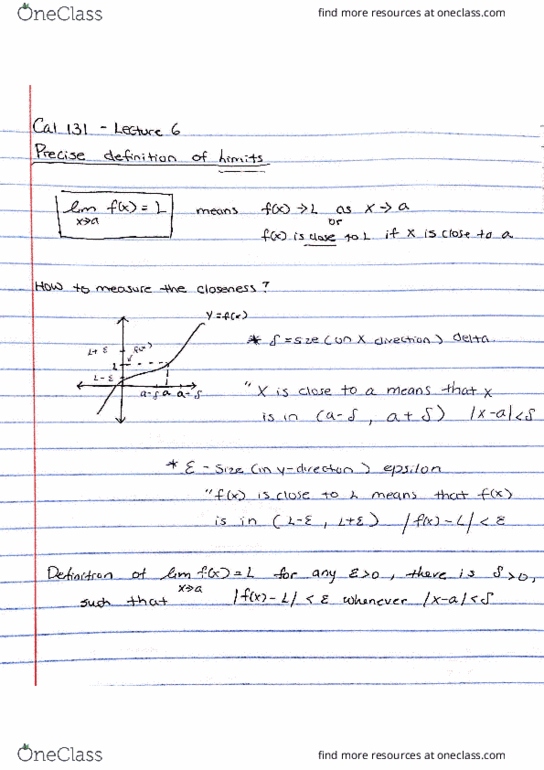 OneClass
find more resources at oneclass.com
Cal 131 - Lecture 6
Precise definition of limits
lim f(x) = L means f(x) → L as x → a
x→a
or
f(x) is close to L if x is close to a
How to measure the closeness?
y = f(x)
L+ε
f(x)
L
L-ε
a-δ a a-δ
* δ = size (in x direction) delta.
"x is close to a means that x
is in (a-δ, a+δ) |x-a|<δ
* ε - size (in y-direction) epsilon
"f(x) is close to L means that f(x)
is in (L-ε, L+ε) |f(x)-L|<ε
Definition of lim f(x) = L for any ε>0, there is δ>0,
x→a
such that |f(x)-L|<ε whenever |x-a|<δ
OneClass
find more resources at oneclass.com